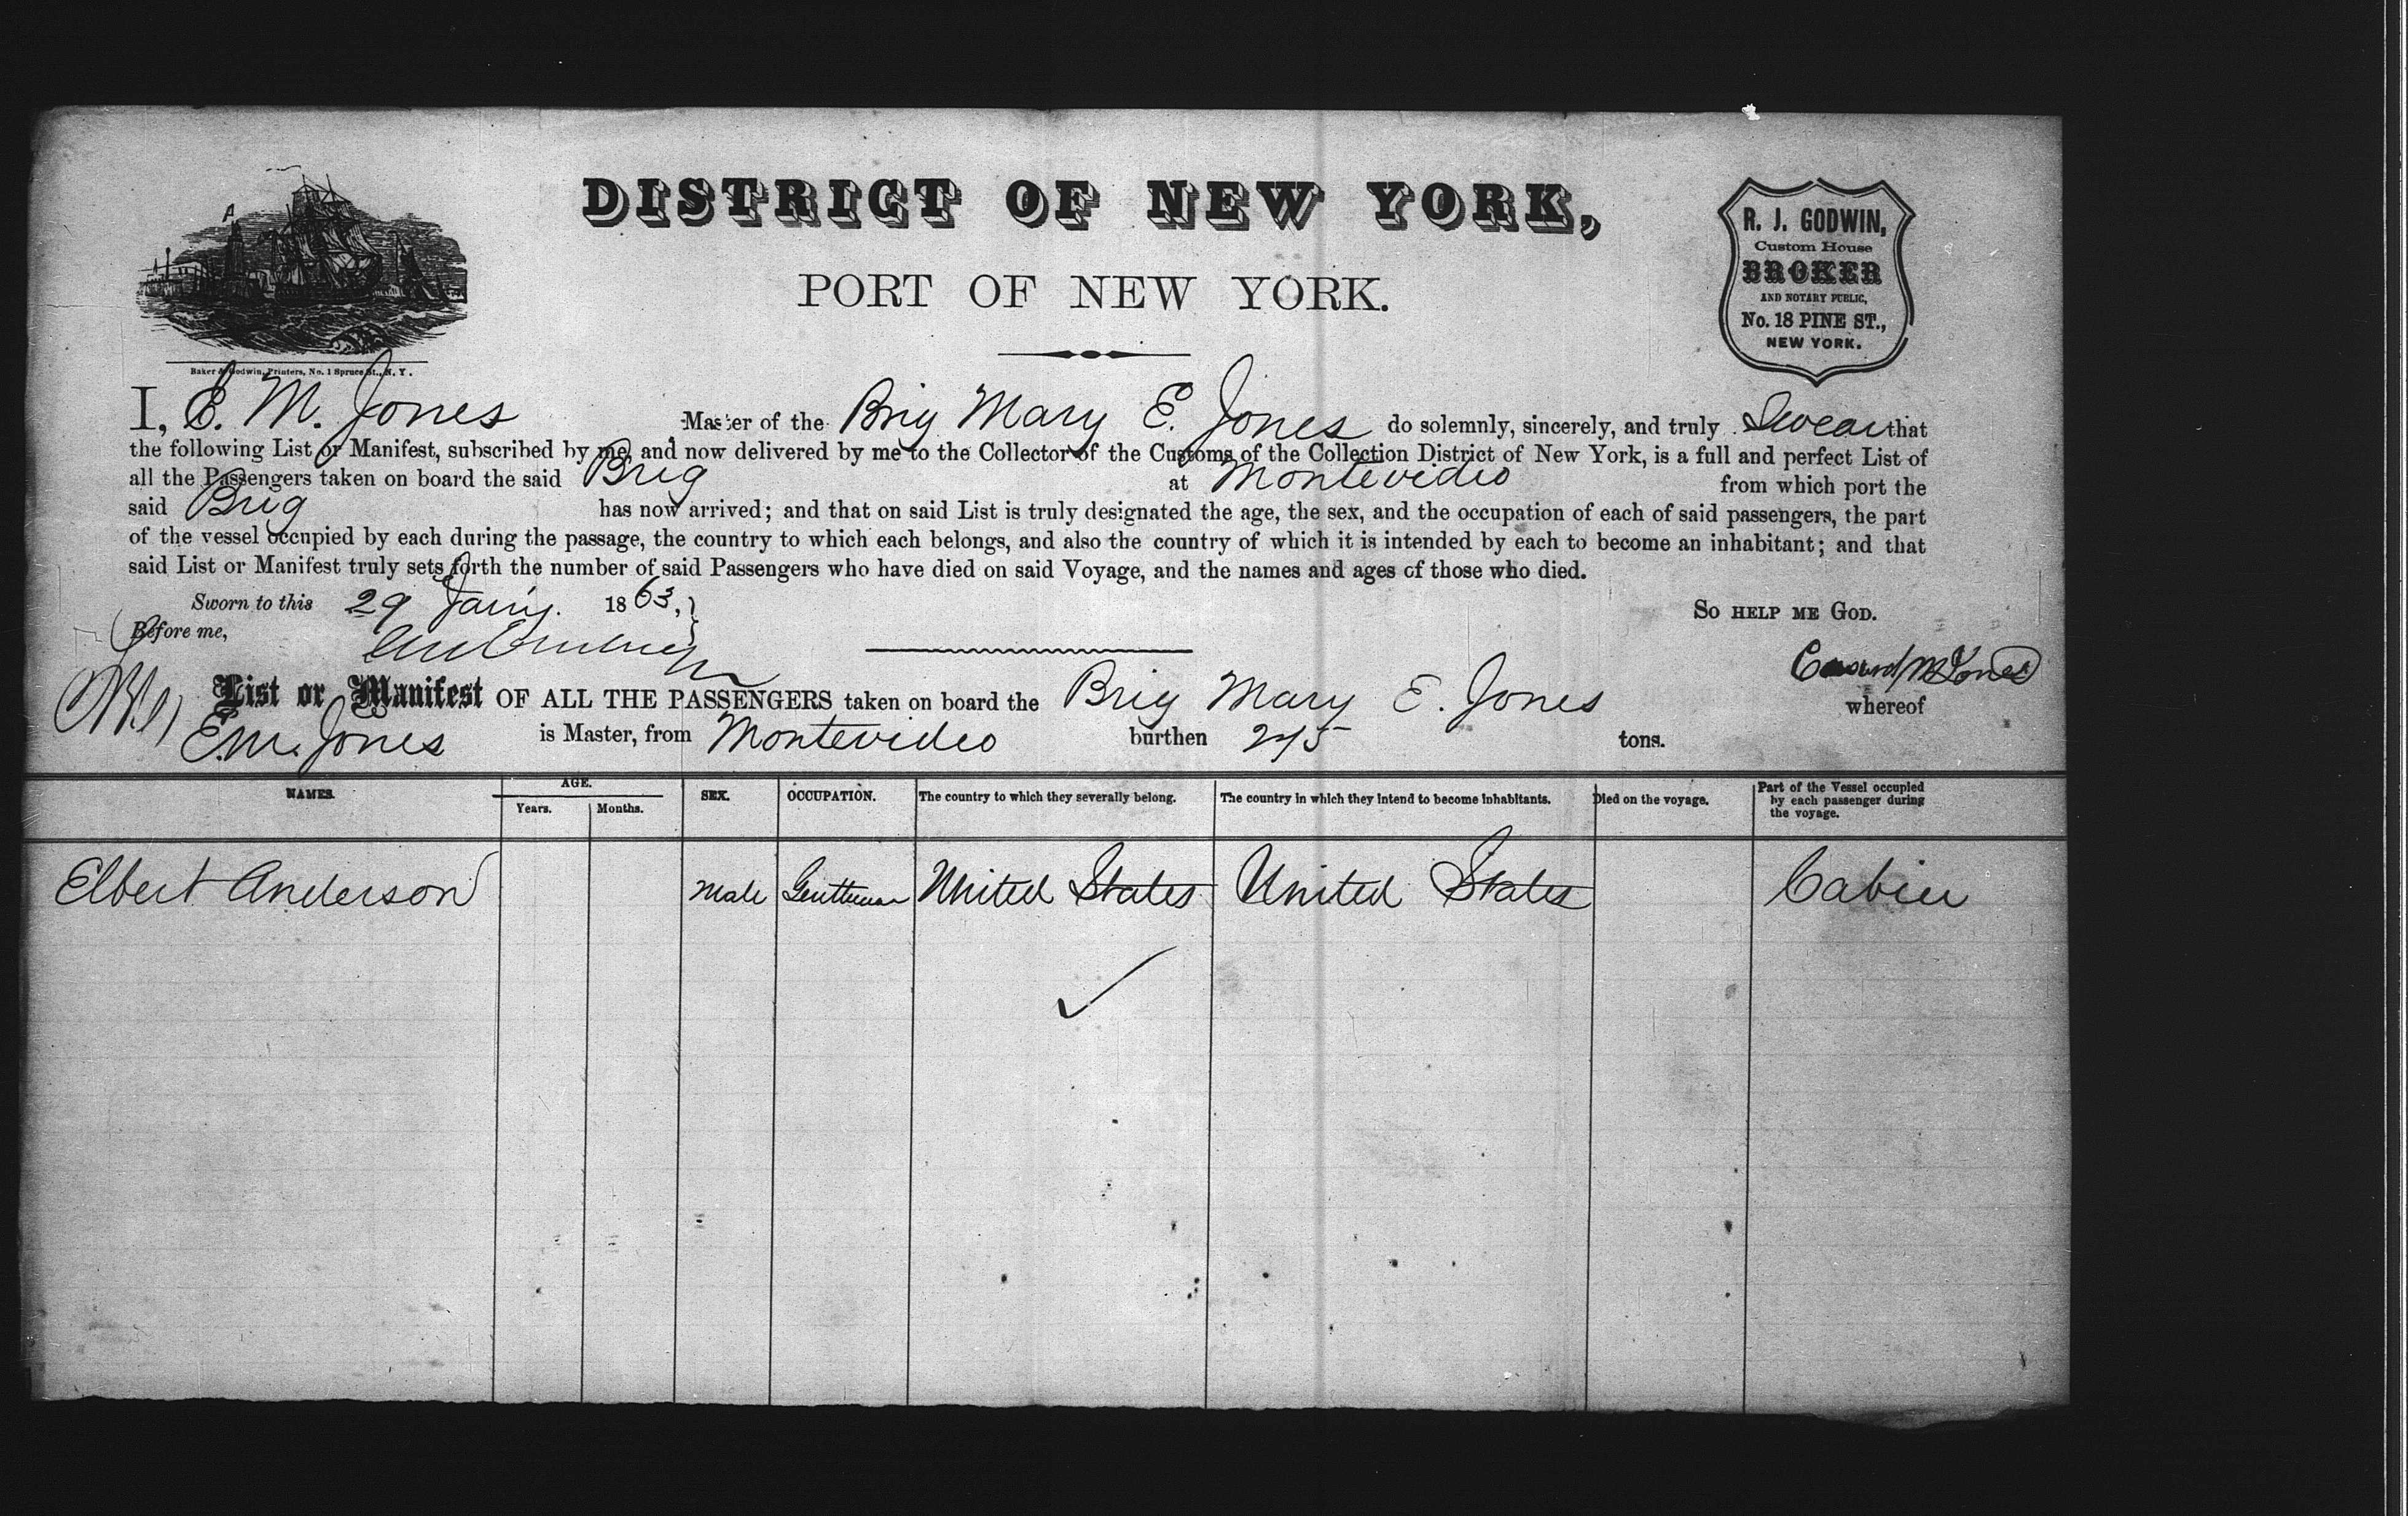 DISTRICT OF NEW YORK,
PORT OF NEW YORK.
R. J. GODWIN,
Custom House
BROKER
AND NOTARY PUBLIC,
No. 18 PINE ST.,
NEW YORK.
Baker & Godwin, Printers, No. 1 Spruce St., N. Y.
I, E. M. Jones Master of the Brig Mary E. Jones do solemnly, sincerely, and truly Swear that
the following List or Manifest, subscribed by me, and now delivered by me to the Collector of the Customs of the Collection District of New York, is a full and perfect List of
all the Passengers taken on board the said Brig at Montevideo from which port the
said Brig has now arrived; and that on said List is truly designated the age, the sex, and the occupation of each of said passengers, the part
of the vessel occupied by each during the passage, the country to which each belongs, and also the country of which it is intended by each to become an inhabitant; and that
said List or Manifest truly sets forth the number of said Passengers who have died on said Voyage, and the names and ages of those who died.
Sworn to this 29 Jany. 1863, SO HELP ME GOD.
Before me,
List or Manifest OF ALL THE PASSENGERS taken on board the Brig Mary E. Jones whereof
E. M. Jones is Master, from Montevideo burthen 245 tons.
NAMES. AGE. Years. Months. SEX. OCCUPATION. The country to which they severally belong. The country in which they intend to become inhabitants. Died on the voyage. Part of the Vessel occupied by each passenger during the voyage.
Elbert Anderson Male Gentleman United States United States Cabin